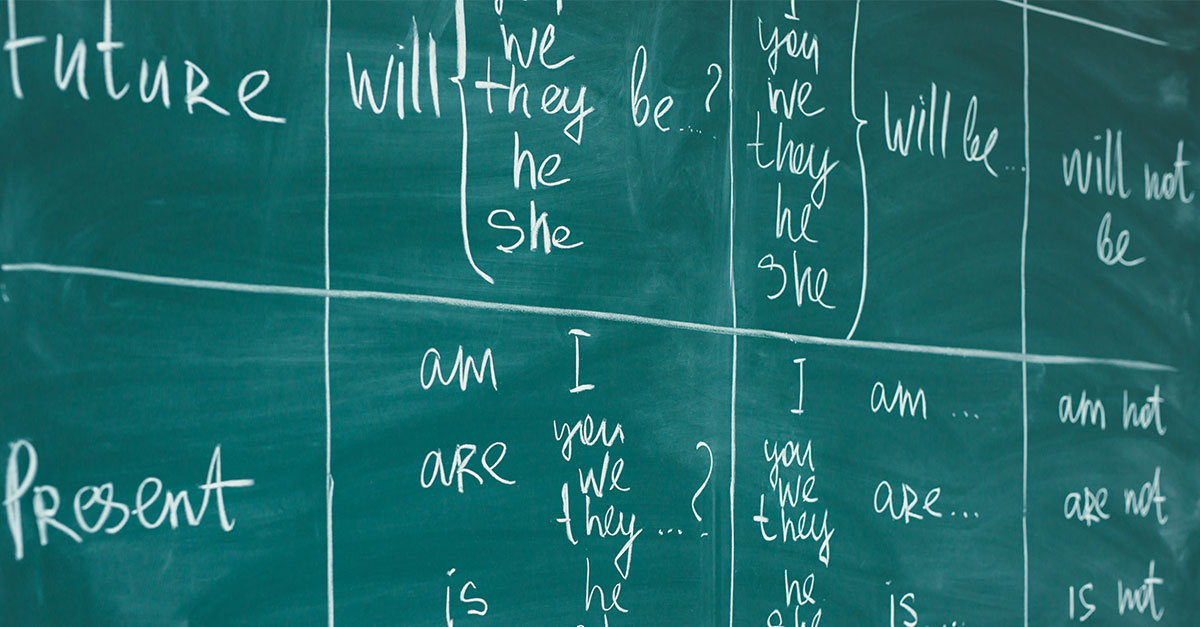 Future
will
we
they be....?
he
she
I
you
we
they
he
she
will be...
will not
be
Present
am I
are you
we
they...?
is he
I am ...
you
we are...
they
he is....
she
am not
are not
is not